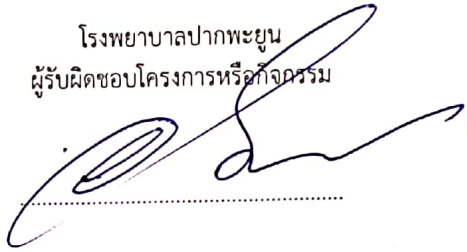 โรงพยาบาลปากพะยูน
ผู้รับผิดชอบโครงการหรือกิจกรรม